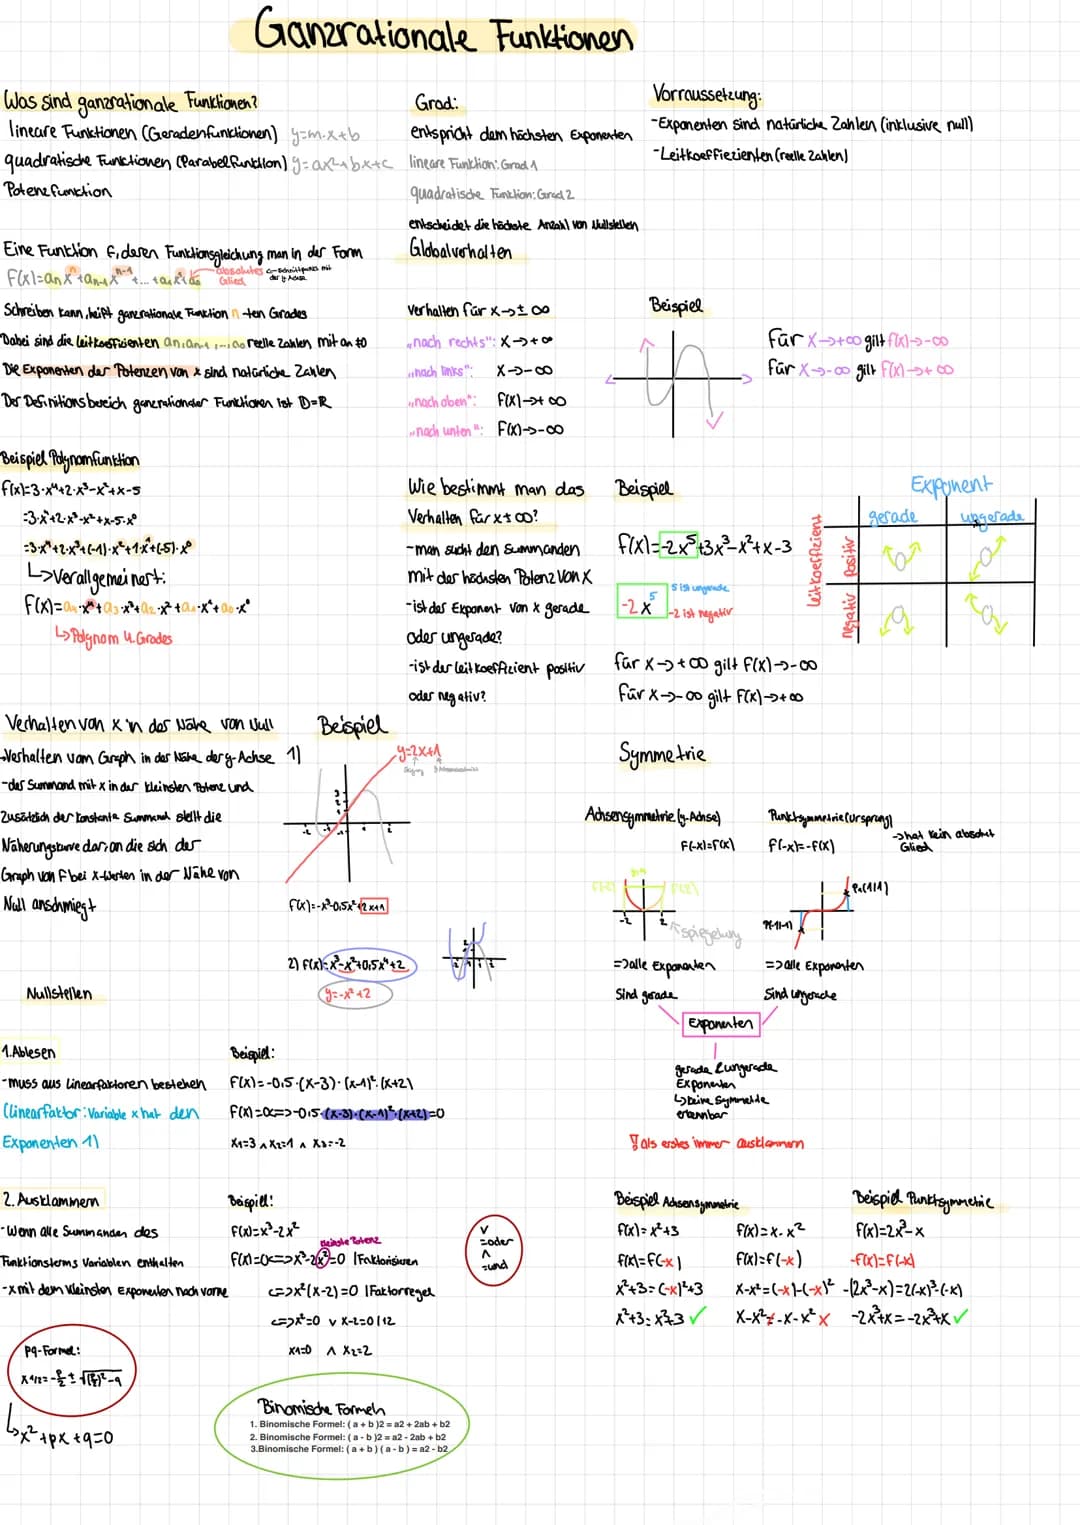 Ganzrationale Funktionen
Was sind ganzrationale Funktionen?
lineare Funktionen (Geradenfunktionen) y=m·x+b
quadratische Funktionen (Parabelfunktion) y=ax²+bx+c
Potenzfunktion
Grad:
entspricht dem höchsten Exponenten
lineare Funktion: Grad 1
quadratische Funktion: Grad 2
entscheidet die höchste Anzahl von Nullstellen
Vorraussetzung:
-Exponenten sind natürliche Zahlen (inklusive null)
-Leitkoeffiezienten (reelle Zahlen)
Eine Funktion f, deren Funktionsgleichung man in der Form
f(x)=aₙxⁿ+aₙ₋₁xⁿ⁻¹+...+a₁x¹+a₀
absolutes Glied
Schnittpunkt mit der y Achse
Schreiben kann, heißt ganzrationale Funktion n-ten Grades
Dabei sind die Leitkoeffizienten aₙ, aₙ₋₁,..., a₀ reelle Zahlen mit aₙ≠0
Die Exponenten der Potenzen von x sind natürliche Zahlen
Der Definitionsbereich ganzrationaler Funktionen ist D=R
Globalverhalten
Verhalten für x→±∞
„nach rechts": x→+∞
„nach links": x→-∞
„nach oben": f(x)→+∞
„nach unten": f(x)→-∞
Beispiel
Für x→+∞ gilt f(x)→-∞
Für x→-∞ gilt f(x)→+∞
Beispiel Polynomfunktion
f(x)=3·x⁴+2·x³-x²+x-5
=3·x⁴+2·x³-x²+x-5·x⁰
=3·x⁴+2·x³+(-1)·x²+1·x¹+(-5)·x⁰
↳Verallgemeinert:
f(x)=a₄·x⁴+a₃·x³+a₂·x²+a₁·x¹+a₀·x⁰
↳Polynom 4. Grades
Wie bestimmt man das
Verhalten für x±∞?
-man sucht den Summanden
mit der höchsten Potenz von x
-ist der Exponent von x gerade
oder ungerade?
-ist der Leitkoeffizient positiv
oder negativ?
Beispiel
f(x)=-2x⁵+3x³-x²+x-3
-2x⁵
5 ist ungerade
-2 ist negativ
für x→+∞ gilt f(x)→-∞
Für x→-∞ gilt f(x)→+∞
Exponent
gerade ungerade
Leitkoeffizient
Positiv
negativ
Verhalten von x in der Nähe von Null
→Verhalten vom Graph in der Nähe der y-Achse
-der Summand mit x in der kleinsten Potenz und
Zusätzlich der konstante Summand stellt die
Näherungskurve dar, an die sich der
Graph von f bei x-Werten in der Nähe von
Null anschmiegt
Beispiel
1)
y=2x+1
f(x)=-x³-0,5x²+2x+1
2) f(x)=x³-x²+0,5x⁴+2
y=-x²+2
Symmetrie
Achsensymmetrie (y-Achse)
f(-x)=f(x)
f(-2)
f(2)
-2 2
Spiegelung
=>alle Exponenten
Sind gerade
Punktsymmetrie (Ursprung)
f(-x)=-f(x)
->hat kein absolut Glied
P₁(1|1)
P(-1|-1)
=>alle Exponenten
Sind ungerade
Exponenten
gerade & ungerade
Exponenten
↳keine Symmetrie
erkennbar
! als erstes immer ausklammern
Nullstellen
1. Ablesen
-muss aus Linearfaktoren bestehen
(Linearfaktor: Variable x hat den
Exponenten 1)
Beispiel:
f(x)=-0,5·(x-3)·(x-1)²·(x+2)
f(x)=0<=>-0,5·(x-3)·(x-1)²·(x+2)=0
x₁=3 ∧ x₂=1 ∧ x₃=-2
2. Ausklammern
-Wenn alle Summanden des
Funktionsterms Variablen enthalten
-x mit dem kleinsten Exponenten nach vorne
Beispiel:
f(x)=x³-2x²
kleinste Potenz
f(x)=0<=>x³-2x²=0 |Faktorisieren
<=>x²(x-2)=0 |Faktorregel
<=>x²=0 ∨ x-2=0 |+2
x₁=0 ∧ x₂=2
∨
=oder
∧
=und
Beispiel Achsensymmetrie
f(x)=x²+3
f(x)=f(-x)
x²+3=(-x)²+3
x²+3=x²+3 ✓
f(x)=x-x²
f(x)=f(-x)
x-x²=(-x)-(-x)²
x-x²≠-x-x² x
Beispiel Punktsymmetrie
f(x)=2x³-x
-f(x)=f(-x)
-(2x³-x)=2(-x)³-(-x)
-2x³+x=-2x³+x ✓
pq-Formel:
x₁/₂=-p/2±√((p/2)²-q)
↳x²+px+q=0
Binomische Formeln
1. Binomische Formel: ( a + b )2 = a2 + 2ab + b2
2. Binomische Formel: ( a - b )2 = a2 - 2ab + b2
3.Binomische Formel: ( a + b ) ( a - b ) = a2 - b2